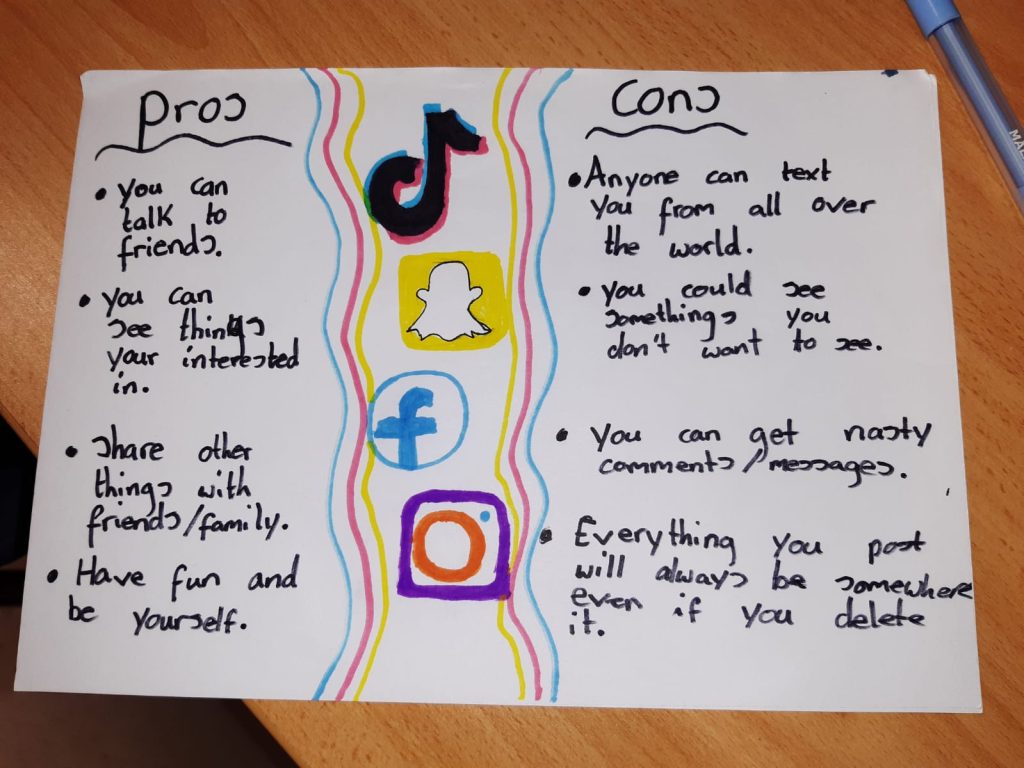 Pros
• You can
talk to
friends.
• You can
see things
your interested
in.
• Share other
things with
friends/family.
• Have fun and
be yourself.
Cons
• Anyone can text
you from all over
the world.
• You could see
somethings you
don't want to see.
• You can get nasty
comments/messages.
• Everything you post
will always be somewhere
even if you delete
it.
f